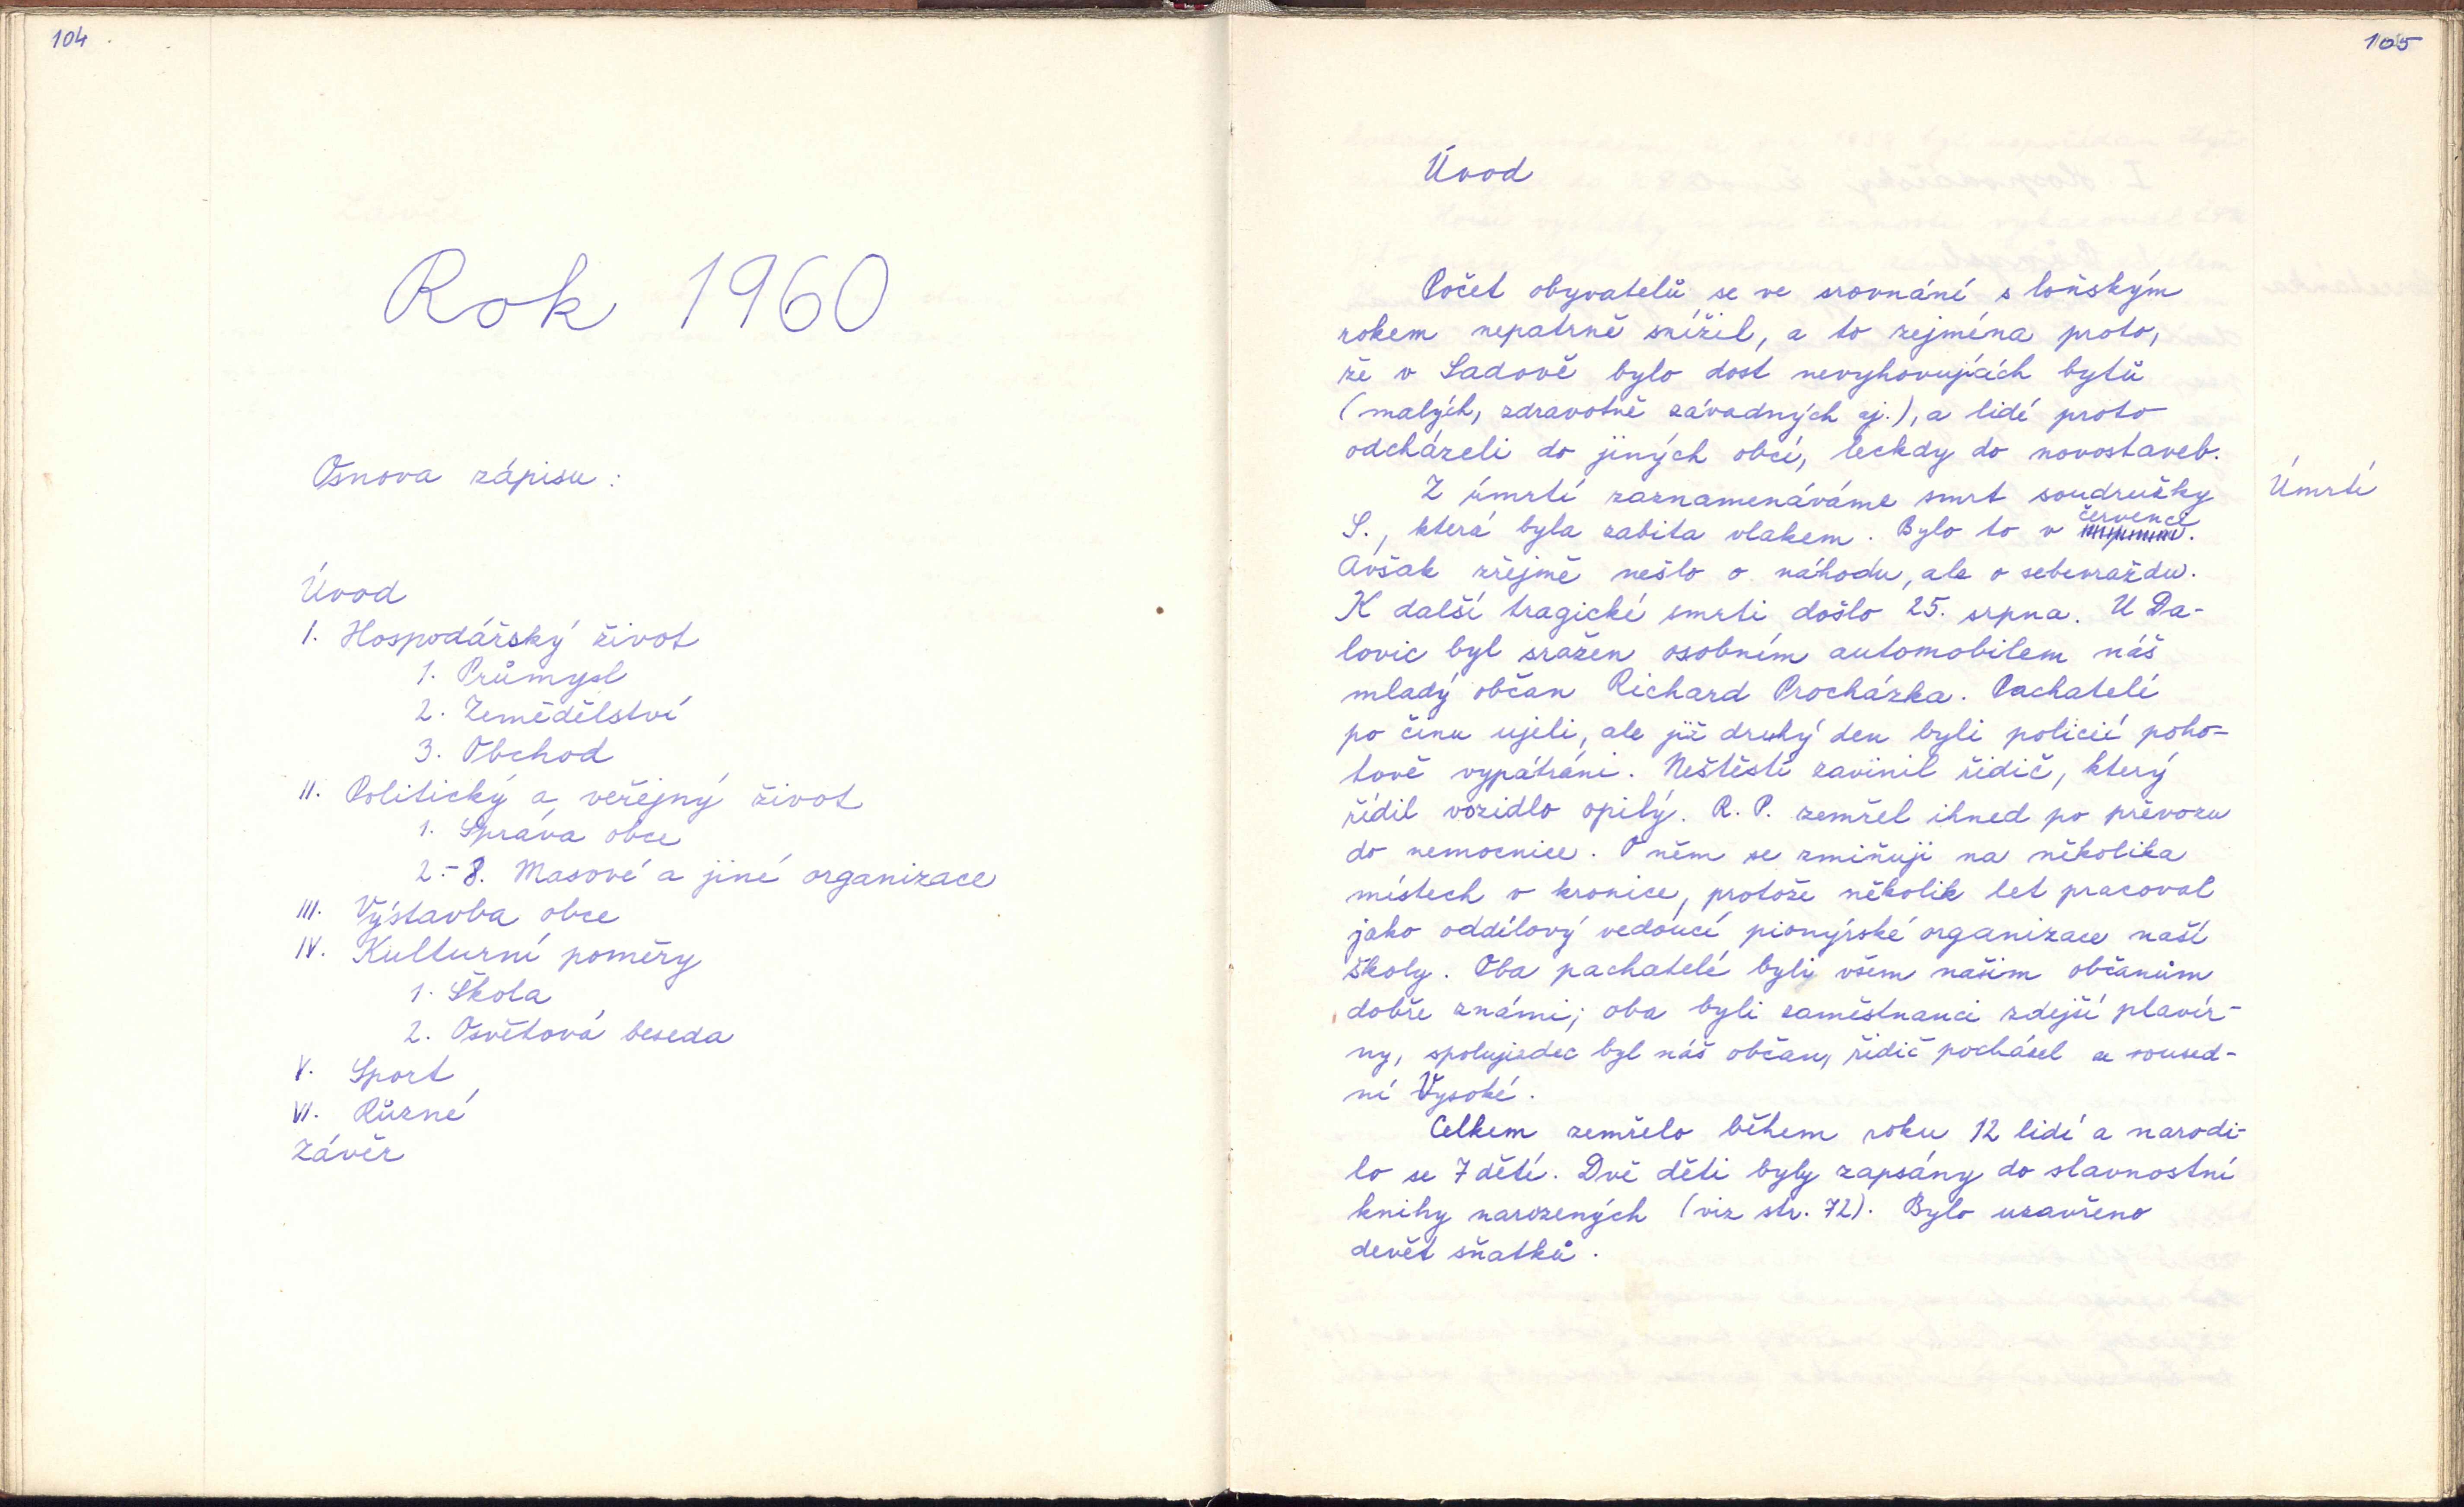 104
Rok 1960
Osnova zápisu:
Úvod
I. Hospodářský život
1. Průmysl
2. Zemědělství
3. Obchod
II. Politický a veřejný život
1. Správa obce
2.-8. Masové a jiné organizace
III. Výstavba obce
IV. Kulturní poměry
1. Škola
2. Osvětová beseda
V. Sport
VI. Různé
Závěr
105
Úvod
Počet obyvatelů se ve srovnání s loňským
rokem nepatrně snížil, a to zejména proto,
že v Sadově bylo dost nevyhovujících bytů
(malých, zdravotně závadných aj.), a lidé proto
odcházeli do jiných obcí, leckdy do novostaveb.
Z úmrtí zaznamenáváme smrt soudružky
Úmrtí
S., která byla zabita vlakem. Bylo to v červenci.
Avšak zřejmě nešlo o náhodu, ale o sebevraždu.
K další tragické smrti došlo 25. srpna. U Da-
lovic byl sražen osobním automobilem náš
mladý občan Richard Procházka. Pachatelé
po činu ujeli, ale již druhý den byli policií poho-
tově vypátráni. Neštěstí zavinil řidič, který
řídil vozidlo opilý. R. P. zemřel ihned po převozu
do nemocnice. O něm se zmiňuji na několika
místech v kronice, protože několik let pracoval
jako oddílový vedoucí pionýrské organizace naší
školy. Oba pachatelé byli všem našim občanům
dobře známi; oba byli zaměstnanci zdejší plavír-
ny, spolujezdec byl náš občan, řidič pocházel ze soused-
ní Vysoké.
Celkem zemřelo během roku 12 lidí a narodi-
lo se 7 dětí. Dvě děti byly zapsány do slavnostní
knihy narozených (viz str. 72). Bylo uzavřeno
devět sňatků.